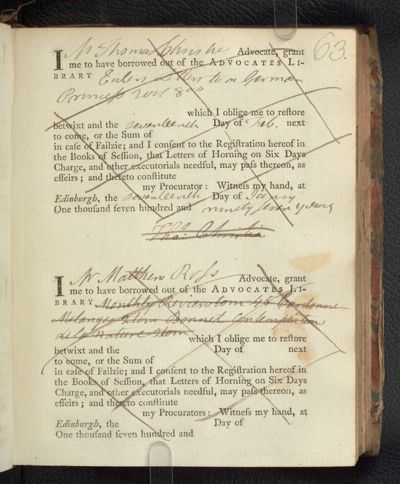 63.
I Mr Thomas Christie Advocate, grant
me to have borrowed out of the ADVOCATES LI-
BRARY Eulers Letters to a German
Princess 2 vol 8vo
which I oblige me to reſtore
betwixt and the seventeenth Day of Feb. next
to come, or the Sum of
in caſe of Failzie; and I conſent to the Regiſtration hereof in
the Books of Seſſion, that Letters of Horning on Six Days
Charge, and other executorials needful, may paſs thereon, as
effeirs; and thereto conſtitute
my Procurator: Witneſs my hand, at
Edinburgh, the seventeenth Day of
One thouſand ſeven hundred and ninety seven years
Tho: Christie
I Mr Matthew Ross Advocate, grant
me to have borrowed out of the ADVOCATES LI-
BRARY Monthly Review tom
Melanges tom Bonnet Contemplation
de la Nature tom
which I oblige me to reſtore
betwixt and the Day of next
to come, or the Sum of
in caſe of Failzie; and I conſent to the Regiſtration hereof in
the Books of Seſſion, that Letters of Horning on Six Days
Charge, and other executorials needful, may paſs thereon, as
effeirs; and thereto conſtitute
my Procurators: Witneſs my hand, at
Edinburgh, the Day of
One thouſand ſeven hundred and